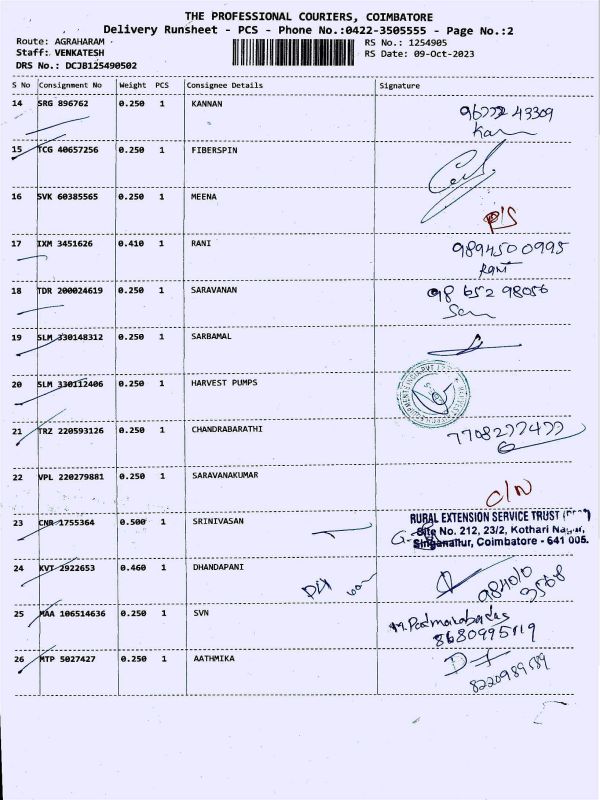 THE PROFESSIONAL COURIERS, COIMBATORE
Delivery Runsheet - PCS - Phone No.:0422-3505555 - Page No.:2
Route: AGRAHARAM
RS No.: 1254905
Staff: VENKATESH
RS Date: 09-Oct-2023
DRS No.: DCJB125490502
S No Consignment No Weight PCS Consignee Details Signature
14 SRG 896762 0.250 1 KANNAN
15 TCG 40657256 0.250 1 FIBERSPIN
16 SVK 60385565 0.250 1 MEENA
17 IXM 3451626 0.410 1 RANI 9894500995
Rani
18 TDR 200024619 0.250 1 SARAVANAN 98 652 98056
19 SLM 330148312 0.250 1 SARBAMAL
20 SLM 330112406 0.250 1 HARVEST PUMPS
21 TRZ 220593126 0.250 1 CHANDRABARATHI
22 VPL 220279881 0.250 1 SARAVANAKUMAR
C/N
23 CNR 1755364 0.500 1 SRINIVASAN
RURAL EXTENSION SERVICE TRUST
Site No. 212, 23/2, Kothari Nagar,
Singanallur, Coimbatore - 641 005.
24 KVT 2922653 0.460 1 DHANDAPANI
25 MAA 106514636 0.250 1 SVN
26 MTP 5027427 0.250 1 AATHMIKA